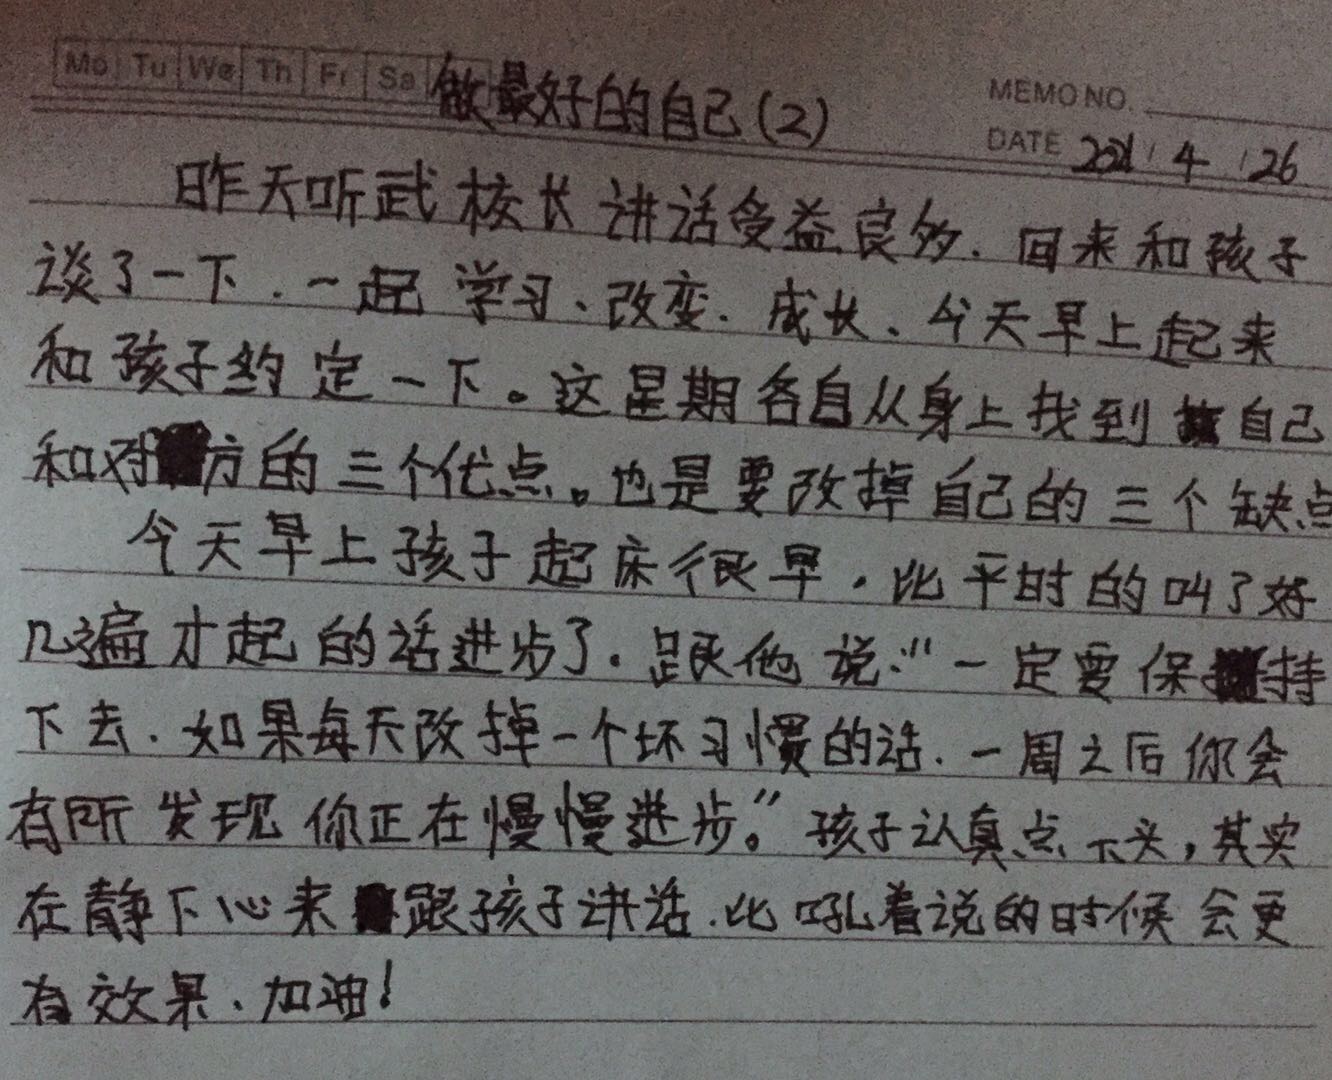 Mo Tu We Th Fr Sa
做最好的自己(2)
MEMO NO.
DATE 2021 / 4 / 26
昨天听武校长讲话受益良多.回来和孩子
谈了一下.一起学习、改变.成长、今天早上起来
和孩子约定一下。这星期各自从身上找到自己
和对方的三个优点。也是要改掉自己的三个缺点
今天早上孩子起床很早.比平时的叫了好
几遍才起的话进步了.跟他说:"一定要保持
下去.如果每天改掉一个坏习惯的话.一周之后你会
有所发现你正在慢慢进步。"孩子认真点下头,其实
在静下心来跟孩子讲话.比吼着说的时候会更
有效果、加油!